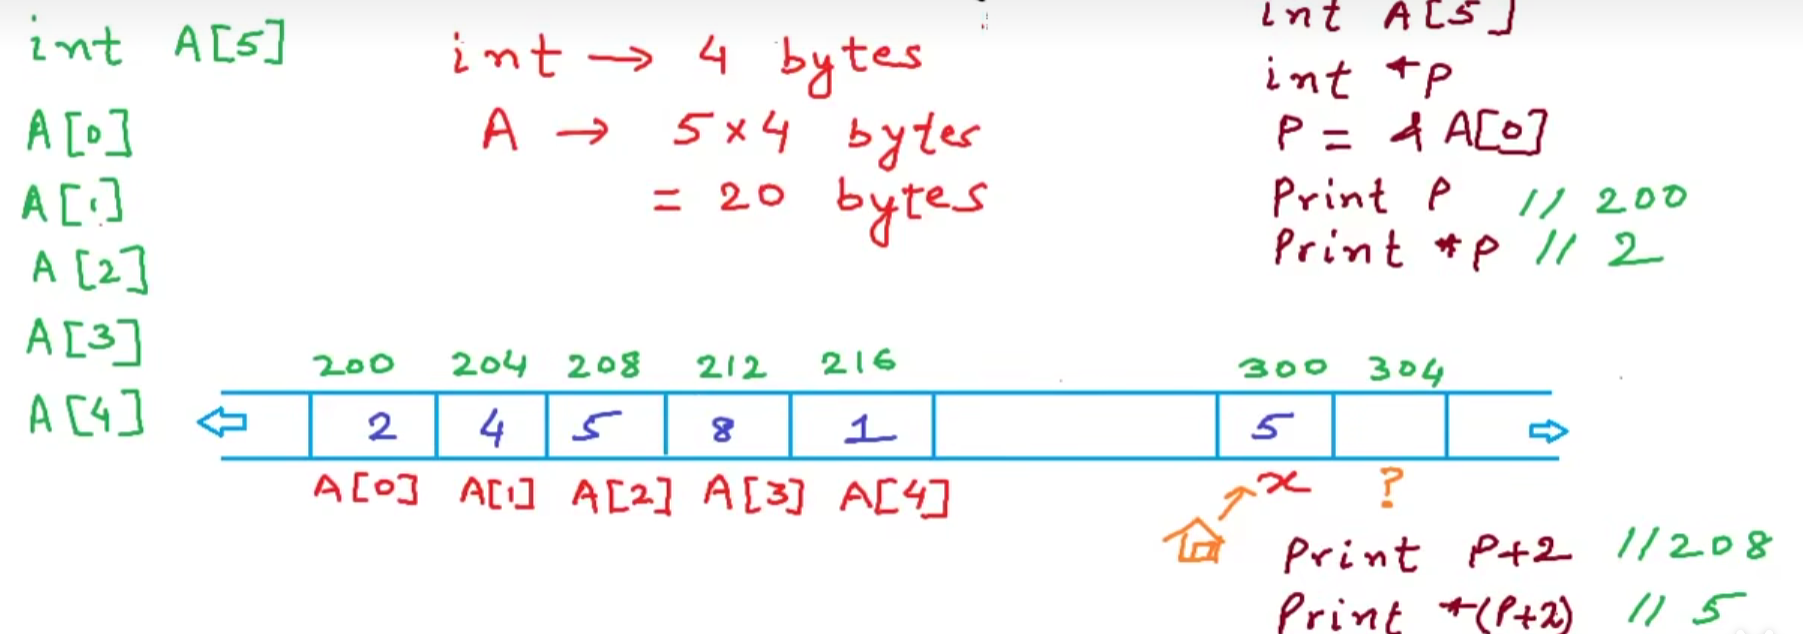 int A[5]
A[0]
A[1]
A[2]
A[3]
A[4]
int → 4 bytes
A → 5×4 bytes
= 20 bytes
int A[5]
int *p
P = & A[0]
Print P // 200
Print *p // 2
200 204 208 212 216 300 304
2 4 5 8 1 5
A[0] A[1] A[2] A[3] A[4] x ?
Print P+2 //208
Print *(P+2) // 5